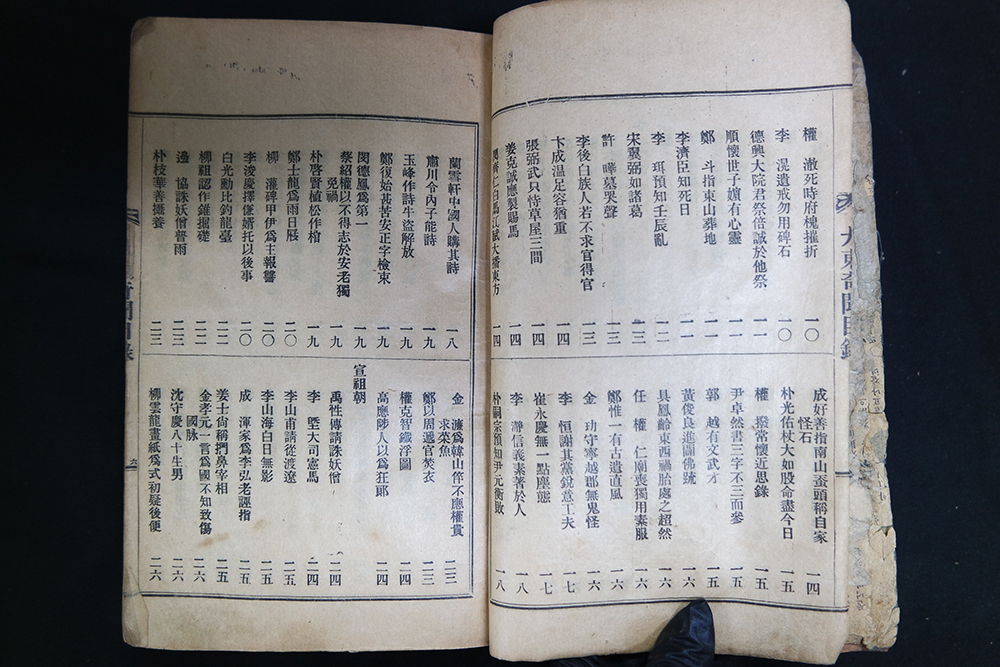 大東奇聞目錄
權 澈死時府槐摧折 一〇
李 滉遺戒勿用碑石 一〇
德興大院君祭倍誠於他祭 一一
順懷世子嬪有心靈 一一
鄭 斗指東山葬地 一一
李濟臣知死日 一一
李 珥預知壬辰亂 一二
宋翼弼如諸葛 一三
許 曄墓哭聲 一三
李後白族人若不求官得官 一三
卞成溫足容猶重 一四
張弼武只恃草屋三間 一四
姜克誠應製賜馬 一四
仁白馬江賦大播東方 一四
成好善指南山蚕頭稱自家
怪石 一四
朴光佑杖大如股命盡今日 一五
權 撥常懷近思錄 一五
尹卓然書三字不三而參 一五
郭 越有文武才 一五
黃俊良進闢佛疏 一六
具鳳齡東西禍胎處之超然 一六
任 權 仁廟喪獨用素服 一六
鄭惟一有古遺直風 一六
金 玏守寧越郡無鬼怪 一六
李 恒謝其黨銳意工夫 一七
崔永慶無一點塵態 一七
李 瀞信義素著於人 一八
朴嗣宗預知尹元衡敗 一八
蘭雪軒中國人購其詩 一八
肅川令內子能詩 一九
玉峰作詩牛盜解放 一九
鄭復始甚苦安正字檢束 一九
閔德鳳爲第一 一九
蔡紹權以不得志於安老獨
免禍 一九
朴啓賢植松作棺 一九
鄭士龍爲雨日屐 二〇
柳 灌碑甲伊爲主報讐 二〇
李浚慶擇偉婿托以後事 二〇
白光勳比釣龍臺 二一
柳祖認作錐掘礎 二二
邊 協誅妖僧普雨 二三
朴枝華善攝養 二三
金 濂爲韓山倅不應權貴
求菜魚 二三
鄭以周遞官焚衣 二三
權克智鐵浮圖 二四
高應陟人以爲狂郞 二四
宣祖朝
禹性傳請誅妖僧 二四
李 塈大司憲馬 二四
李山甫請從渡遼 二五
李山海白日無影 二五
成 渾家爲李弘老誣指 二五
姜士尙稱捫鼻宰相 二五
金孝元一言爲國不知致傷
國脉 二六
沈守慶八十生男 二六
柳雲龍畫紙爲式初疑後便 二六
奇聞目錄
六